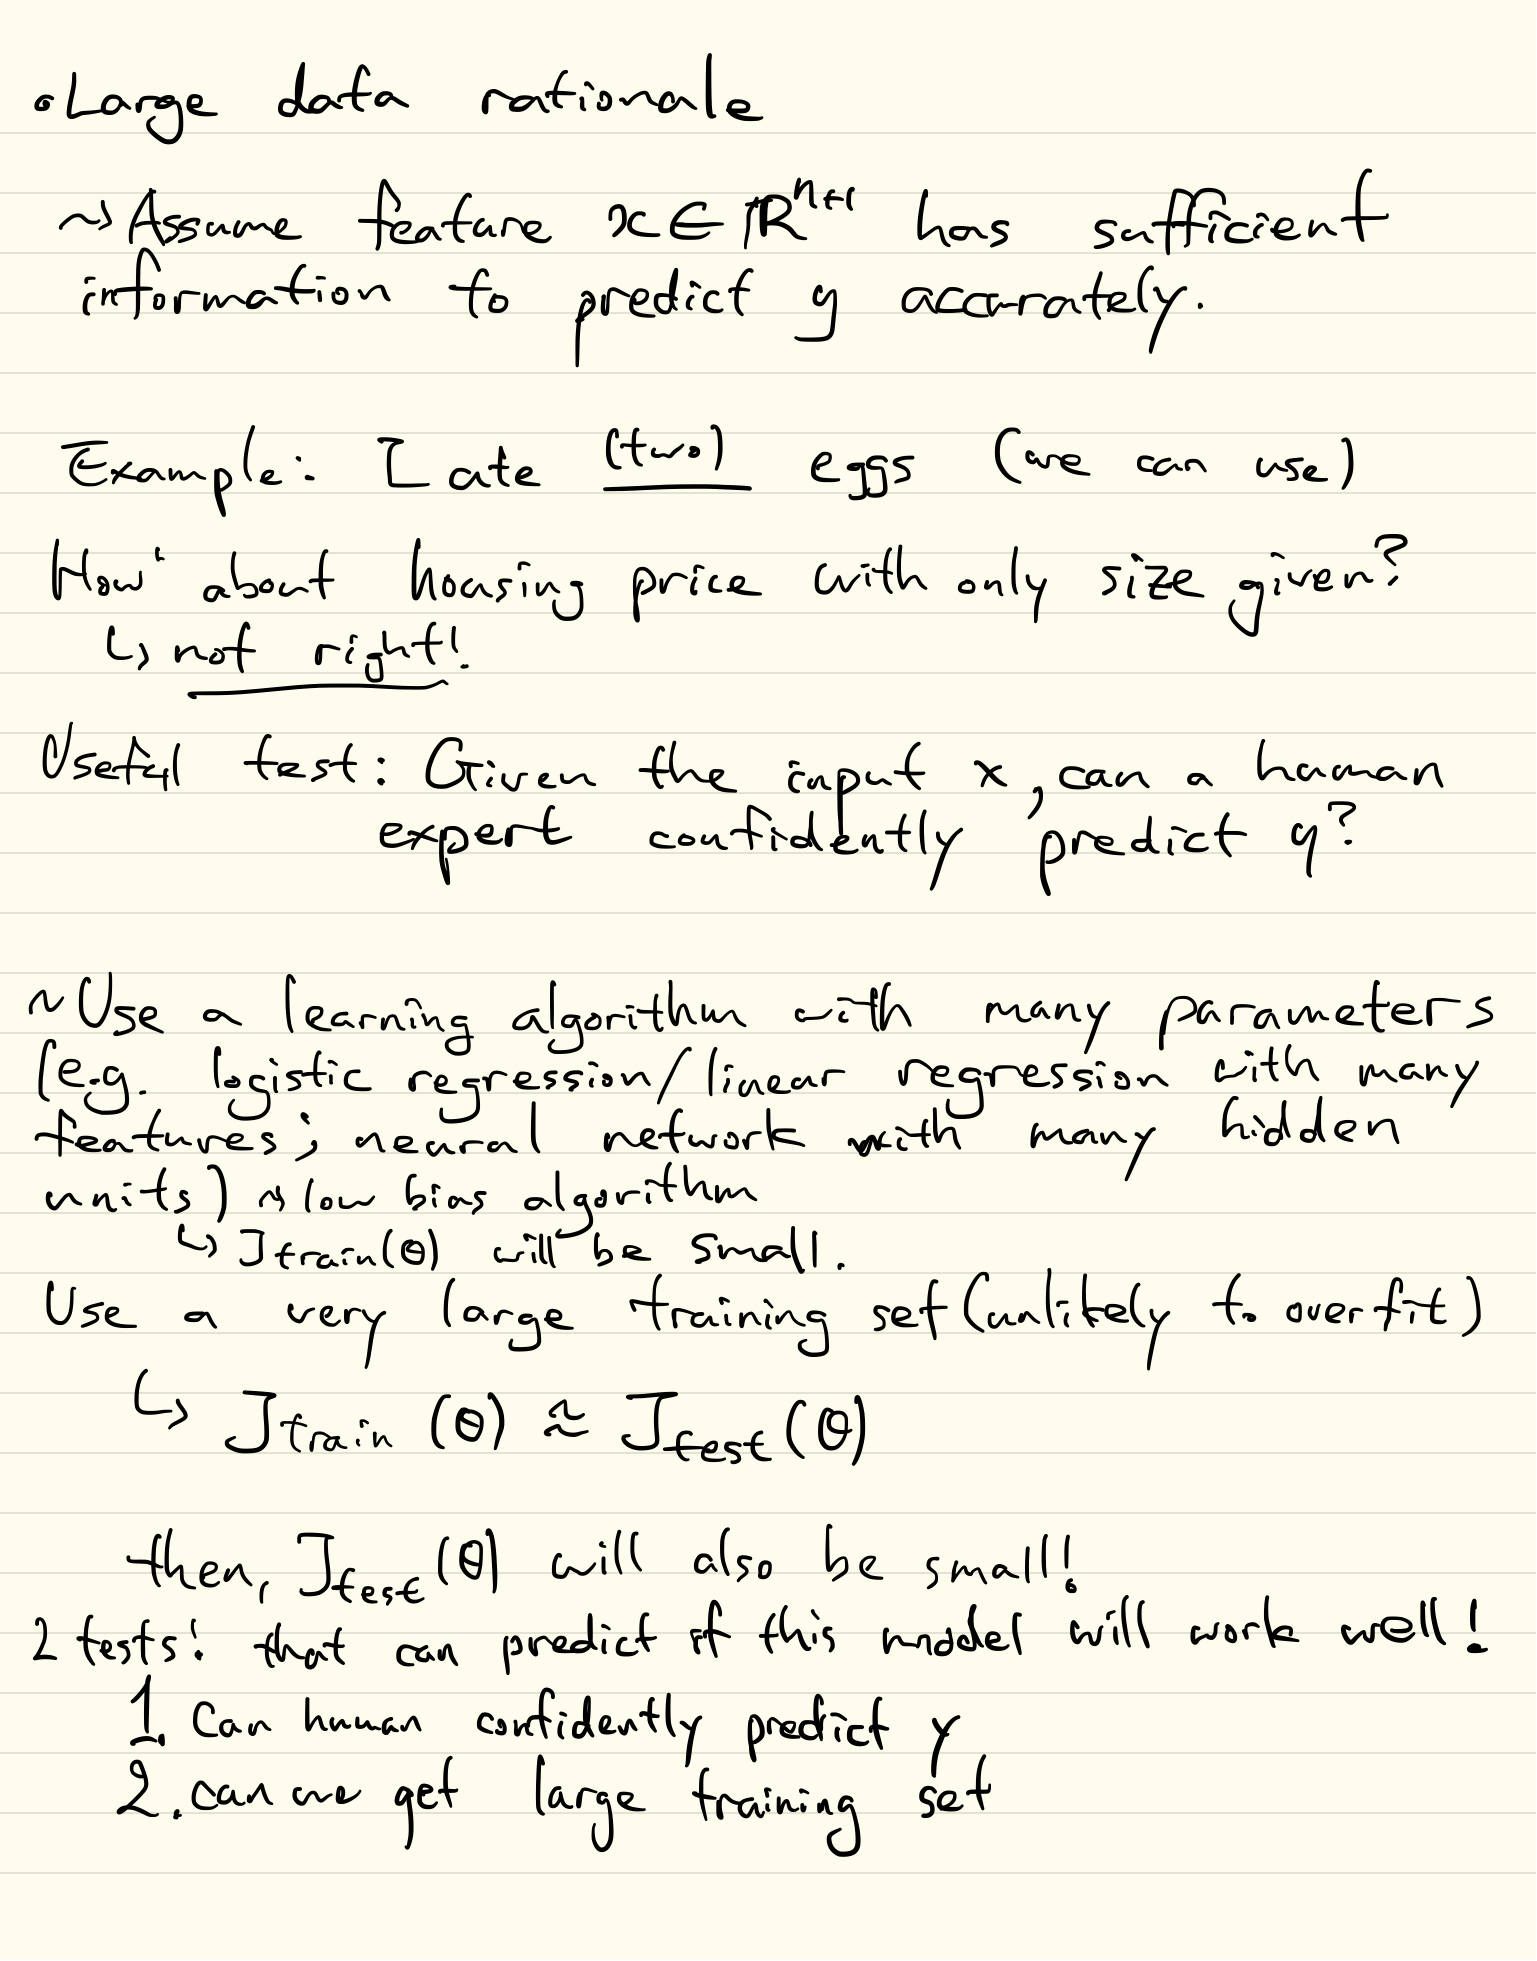 •Large data rationale
~> Assume feature x∈ℝⁿ⁺¹ has sufficient
information to predict y accurately.
Example: I ate (two) eggs (we can use)
How about housing price with only size given?
↳ not right!
Useful test: Given the input x, can a human
expert confidently predict y?
~Use a learning algorithm with many parameters
(e.g. logistic regression/linear regression with many
features; neural network with many hidden
units) ~> low bias algorithm
↳ Jtrain(θ) will be small.
Use a very large training set (unlikely to overfit)
↳ Jtrain (θ) ≈ Jtest (θ)
then, Jtest (θ) will also be small!
2 tests: that can predict if this model will work well!
1. Can human confidently predict y
2. can we get large training set